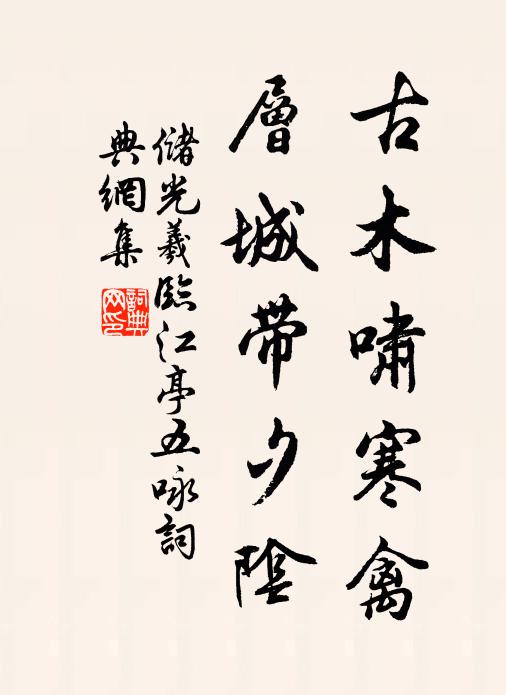 古木嘯寒禽
層城帶夕陰
儲光羲臨江亭五咏詞
典網集
詞典
网印